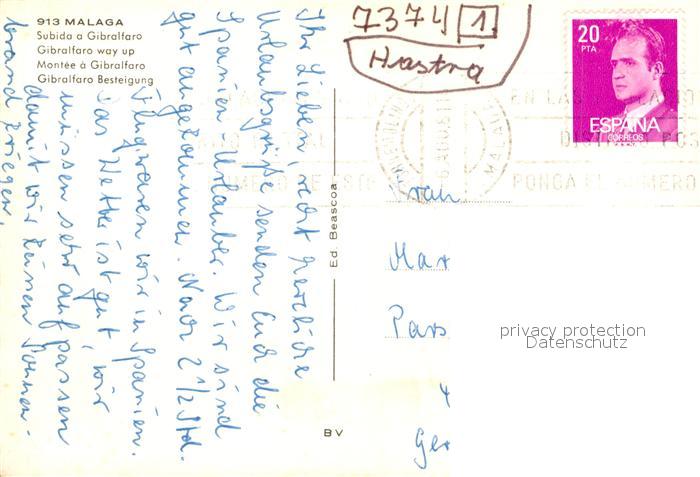 913 MALAGA
Subida a Gibralfaro
Gibralfaro way up
Montée à Gibralfaro
Gibralfaro Besteigung
7374 1
Hastra
20
PTA
ESPAÑA
CORREOS
EN LAS
DIST POS
PONGA EL NUMERO
NUMERO DE ESTE
MALAGA
Ihr Lieben, recht herzliche
Urlaubsgrüße senden Euch die
Spanien-Urlauber. Wir sind
gut angekommen. Nach 2 1/2 Std.
Flug waren wir in Spanien.
Das Wetter ist gut, wir
müssen sehr aufpassen
damit wir keinen Sonnen-
brand kriegen.
Ed. Beascoa
BV
Frau
Mar
Pars
Ger
privacy protection
Datenschutz